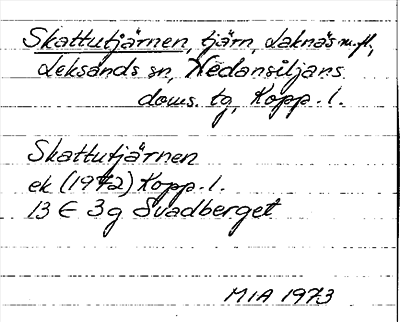 Skattutjärnen, tjärn, Laknäs m.fl.,
Leksands sn, Nedansiljans
doms. tg, Kopp. l.
Skattutjärnen
ek (1972) Kopp. l.
13 E 3g Svadberget
MIA 1973